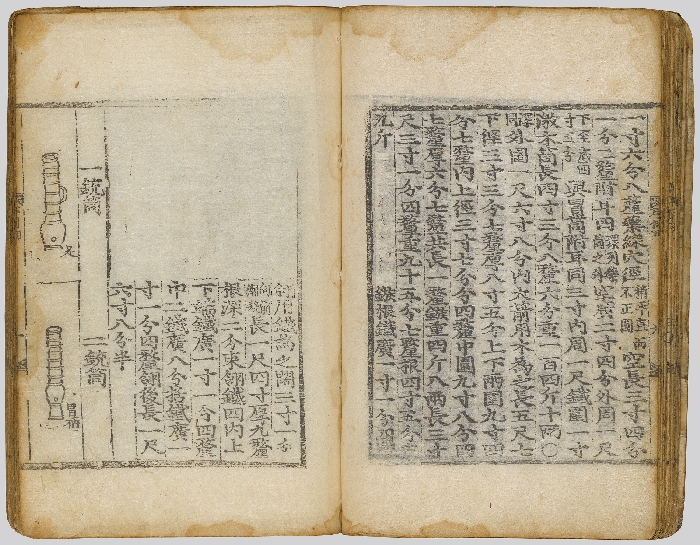 一寸六分八釐藥線穴徑 空長三寸四分
一分一釐附耳四 二寸四分外周二尺
下至底四 與冒筒附耳同三寸內周一尺鐵圓一寸
激木筒長四寸三分八釐六分重一百四斤十兩〇
外圓一尺六寸八分內大箭用木爲之長五尺七
下徑三寸三分七釐厚八寸五分上下兩圓九寸四
分七釐內上徑三寸七分分四釐中圓九寸八分四
七釐厚六分七釐共長一釐鐵重四斤八兩長三寸
尺三寸一分四釐重九十五分七釐根四寸五分
九斤 鏃根鐵廣一寸一分四
用鐵爲之闊三寸一分
長一尺四寸厚九釐
根深二分束翎鐵四內上
下端鐵廣一寸一分四釐
中二鐵廣八分括鐵廣一
寸一分四釐翎後長一尺
六寸八分半
一銃筒
二銃筒